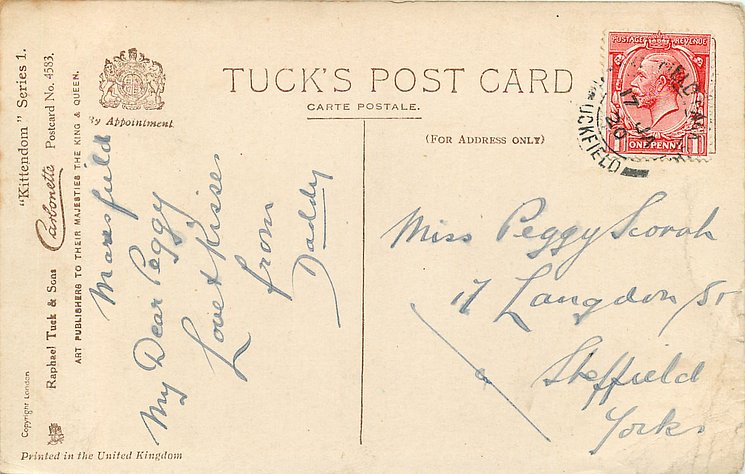 "Kittendom" Series 1.
Carbonette Postcard No. 4583.
Raphael Tuck & Sons
ART PUBLISHERS TO THEIR MAJESTIES THE KING & QUEEN.
Copyright London
By Appointment
TUCK'S POST CARD
CARTE POSTALE.
(FOR ADDRESS ONLY)
POSTAGE REVENUE
1 ONE PENNY 1
17 JA
20
UCKFIELD
Maresfield
My Dear Peggy
Love & Kisses
from
Daddy
Miss Peggy Scorah
17 Langdon St
Sheffield
Yorks
Printed in the United Kingdom